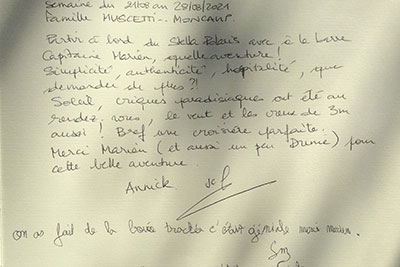 Semaine du 21/08 au 28/08/2021
Famille MUSCETTI - MONCAMP.
Partir à bord du Stella Polaris avec, à la barre
Capitaine Marien, quelle aventure!
Simplicité, authenticité, hospitalité, que
demander de plus?!
Soleil, criques paradisiaques ont été au
rendez-vous, le vent et les creux de 3m
aussi! Bref une croisière parfaite.
Merci Marien (et aussi un peu ) pour
cette belle aventure.
Annick
on as fait de la bouée tractée c'était géniale